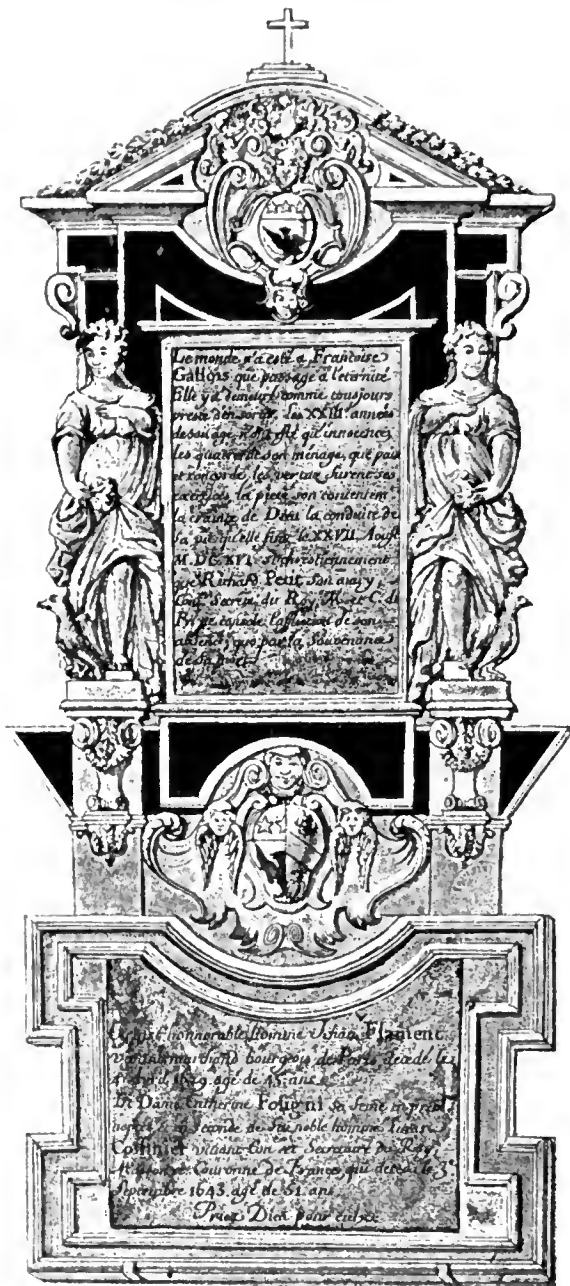 Le monde n'a esté a Francoise
Gallois que passage a l'eternité
Elle y a demeuré comme tousjours
preste d'en sortir. des XXIII. années
de son age, n'ont esté qu'innocence,
les quatre de son menage, que paix
et concorde, les vertus furent ses
exercices, la pieté son contentem
la crainte de Dieu la conduite de
sa vie qu'elle finit le XXVII. Aoust
M.DC.XVI. chrestiennement
que Richard Petit son mary
Con.er Secret. du Roy M. et C. de
Fr. ne console l'affliction de son
absence que par la souvenance
de sa mort
Cy gist honnorable homme Flament
vivant marchand bourgeois de Paris decede le
1629. agé de 45. ans
Et Dame Catherine Foligni sa feme en
nopces et en seconde de feu noble homme
vivant Con.er et Secretaire du Roy
Couronne de France, qui deceda le 3.e
Septembre 1643. agé de 51. ans
Priez Dieu pour eulx